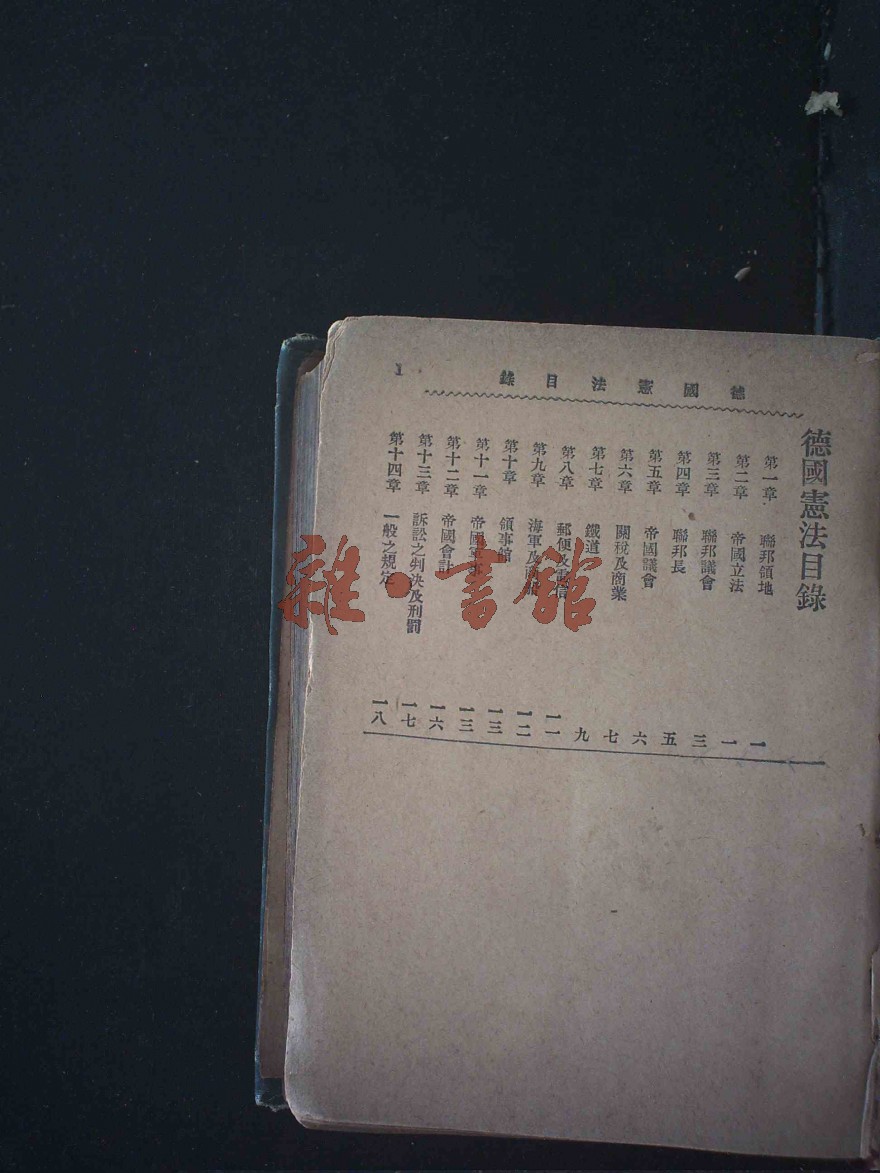 德國憲法目錄
1
德國憲法目錄
第一章 聯邦領地 一
第二章 帝國立法 一
第三章 聯邦議會 三
第四章 聯邦長 五
第五章 帝國議會 六
第六章 關稅及商業 七
第七章 鐵道 九
第八章 郵便及電信 一一
第九章 海軍及 一二
第十章 領事館 一三
第十一章 帝國軍事 一三
第十二章 帝國會計 一六
第十三章 訴訟之判決及刑罰 一七
第十四章 一般之規定 一八
雜·書館